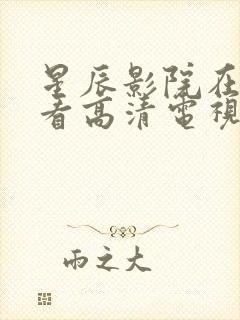 星辰影院在
看高清電視
雨之大